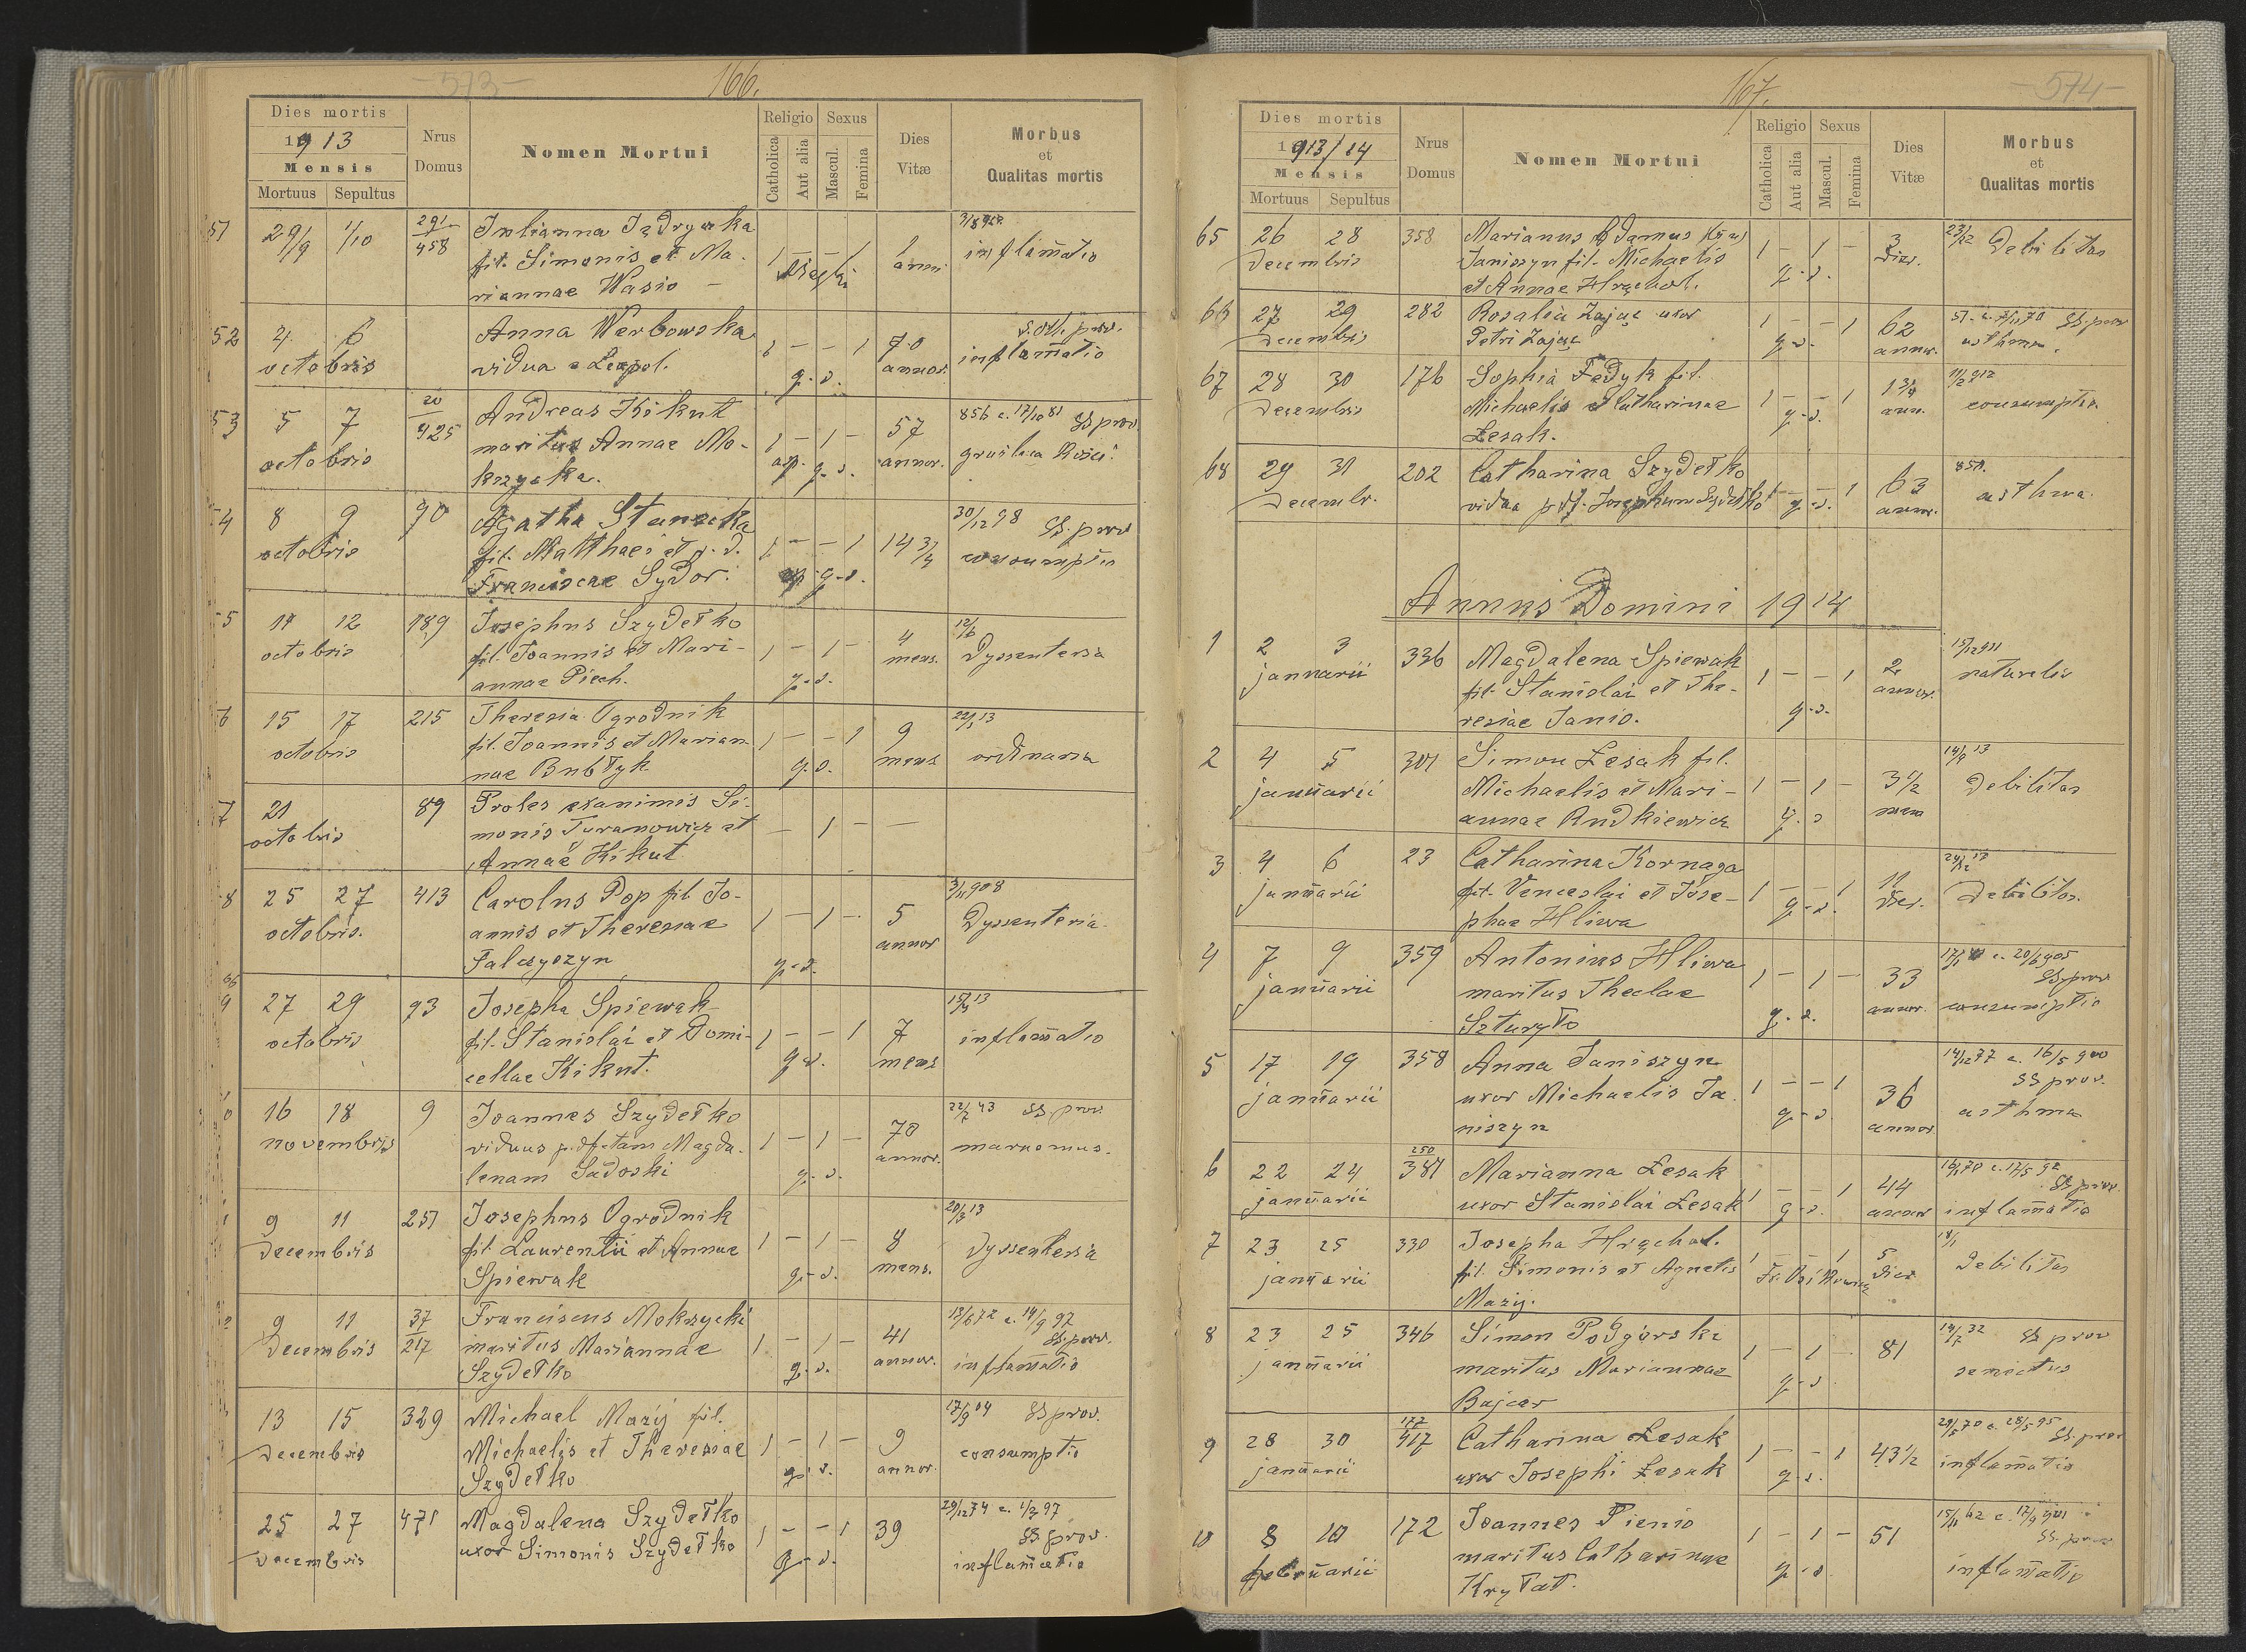 - 573 -
166.
Dies mortis
1913
Mensis
Mortuus Sepultus
Nrus
Domus
Nomen Mortui
Religio
Catholica
Aut alia
Sexus
Mascul.
Femina
Dies
Vitæ
Morbus
et
Qualitas mortis
51 29/9 1/10 291/458 Julianna
fil. Simonis et Ma-
riannae Wasio -
1 - - 1
anni
inflam̄atio
52 4 6
octobris
Anna Werbowska
vidua e Leopol.
1 - - 1
g. s.
70
annor.
inflam̄atio
53 5 7
octobris
20/425
Andreas Kikut
maritus Annae Mo-
krzycka.
1 - 1 -
ap. g. s.
57
annor.
856 c. 17/10 81 SS prov.
gruźlica kości.
54 8 9
octobris
90
Agatha
fil. Matthaei et p. d.
Franciscae Sydor.
1 - - 1
g-s.
14 3/4
30/12 98 SS. prov
consumptio
5 11 12
octobris
189
Josephus Szydełko
fil. Joannis et Mari-
annae Piech.
1 - 1 -
g. s.
4
mens.
12/6
Dyssenteria
6 15 17
octobris
215
Theresia Ogrodnik
fil. Joannis et Marian-
nae Bubłyk
1 - - 1
g. s.
9
mens
22/1 13
ordinaria
7 21
octobris
89
Proles exanimis Si-
monis Turanowicz et
Annae Kikut
- 1 - -
8 25 27
octobris.
413
Carolus Pop fil Jo-
annis et Theresiae
Falczyszyn
1 - 1 -
g. s.
5
annor
3/11 908
Dyssenteria
9 27 29
octobris
93
Josepha Spiewak
fil. Stanislai et Domi-
cellae Kikut.
1 - - 1
g s.
7
mens
15/3 13
inflam̄atio
0 16 18
novembris
9
Joannes Szydełko
viduus p. dftam Magda-
lenam Sadoski
1 - 1 -
g. s.
70
annor.
22/7 43 SS prov.
marasmus.
1 9 11
Decembris
251
Josephus Ogrodnik
fil. Laurentii et Annae
Spiewak
1 - 1 -
g. s.
8
mens.
20/3 13
Dyssenteria
2 9 11
Decembris
37/217
Franciscus Mokrzycki
maritus Mariannae
Szydełko
1 - 1 -
g. s.
41
annor.
13/6 72 c. 14/9 97
SS. prov.
inflam̄atio
13 15
Decembris
329
Michael Mazij fil.
Michaelis et Theresiae
Szydełko
1 - 1 -
g. s.
9
annor.
17/9 04 SS prov.
consumptio
25 27
Decembris
471
Magdalena Szydełko
uxor Simonis Szydełko
1 - - 1
g. s.
39
29/12 74 c. 1/3 97
SS prov.
inflam̄atio
167.
- 574 -
Dies mortis
1913/14
Mensis
Mortuus Sepultus
Nrus
Domus
Nomen Mortui
Religio
Catholica
Aut alia
Sexus
Mascul.
Femina
Dies
Vitæ
Morbus
et
Qualitas mortis
65 26 28
Decembris
358
Marianus Adamus
Janiszyn fil. Michaelis
et Annae Hrychol.
1 - 1 -
g. s.
3
dier.
23/12 Debilitas
66 27 29
Decembris
282
Rosalia Zając uxor
Petri Zając
1 - - 1
g s.
62
annor.
SS. prov
asthma.
67 28 30
Decembris
176
Sophia Fedyk fil.
Michaelis et Catharinae
Łesak.
1 - - 1
g. s.
1 3/4
ann.
11/2 912
consumptio
68 29 31
Decembr.
202
Catharina Szydełko
vidua p. df. Josephum Szydełko
1 - - 1
g. s.
63
annor.
850.
asthma
Annus Domini 1914
1 2 3
januarii
336
Magdalena Spiewak
fil. Stanislai et The-
resiae Janio.
1 - - 1
g. s.
2
annor.
15/12 911
naturalis
2 4 5
januarii
301
Simon Łesak fil.
Michaelis et Mari-
annae Rudkiewicz
1 - 1 -
g. s
3 1/2
mens
14/9 13
Debilitas
3 4 6
januarii
23
Catharina Kornaga
fil. Venceslai et Jose-
phae Hliwa
1 - - 1
g. s.
11
dier.
24/12 13
Debilitas.
4 7 9
januarii
359
Antonius Hliwa
maritus Theclae
Szturyło
1 - 1 -
g. s.
33
annor.
c. 20/6 905
SS prov
consumptio
5 17 19
januarii
358
Anna Janiszyn
uxor Michaelis Ja
niszyn
1 - - 1
g. s
36
annor.
14/12 77 c. 16/5 900
SS prov.
asthma
6 22 24
januarii
250/381
Marianna Łesak
uxor Stanislai Łesak
1 - - 1
g. s.
44
annor
16/1 70 c. 17/5 92
SS prov.
inflam̄atio
7 23 25
januarii
330
Josepha Hrychol.
fil. Simonis et Agnetis
Mazij.
1 - - 1
5
dier
18/1
Debilitas
8 23 25
januarii
346
Simon Podgórski
maritus Mariannae
Bajcar
1 - 1 -
g. s
81
14/2 32 SS prov
senectus
9 28 30
januarii
177/417
Catharina Łesak
uxor Josephi Łesak
1 - - 1
g. s.
43 1/2
29/5 70 c. 28/5 95
SS. prov
inflam̄atio
10 8 10
februarii
172
Joannes Pienio
maritus Catharinae
Kryłat.
1 - 1 -
g. s
51
15/11 62 c. 17/9 901
SS. prov
inflam̄atio